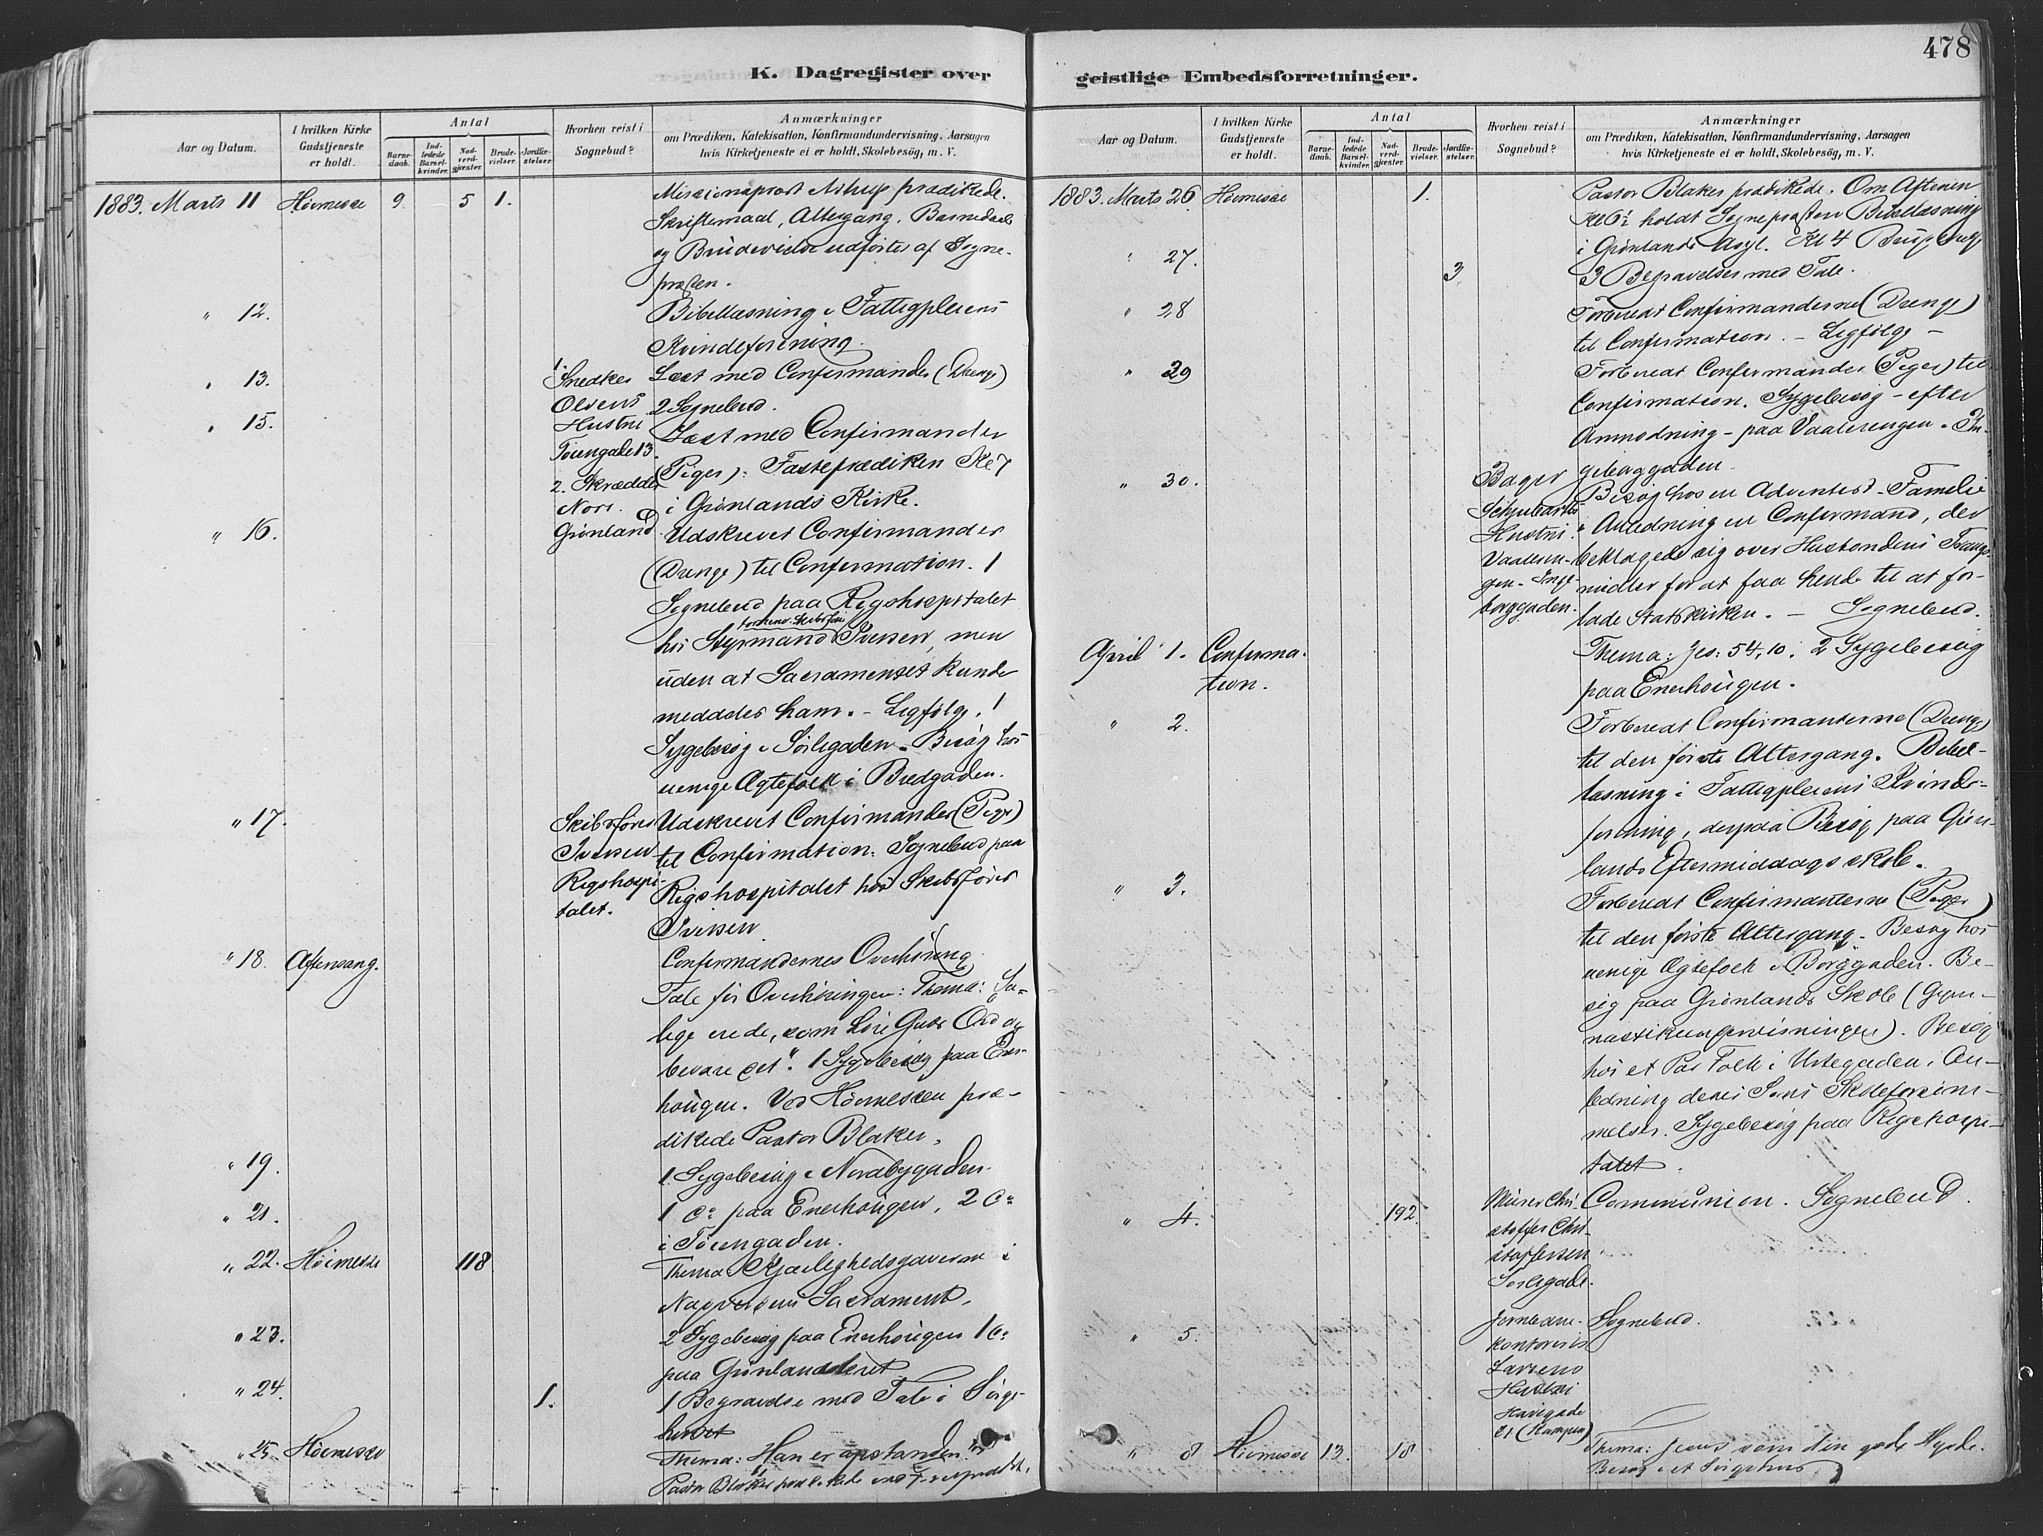 478
K. Dagregister over
geistlige Embedsforretninger.
Aar og Datum.
I hvilken Kirke Gudstjeneste er holdt.
Antal
Barnedaab.
Indledede Barselkvinder.
Nadverdgjæster.
Brudevielser.
Jordfæstelser.
Hvorhen reist i Sognebud?
Anmærkninger
om Prædiken, Katekisation, Konfirmandundervisning, Aarsagen
hvis Kirketjeneste ei er holdt, Skolebesøg, m. V.
1883. Marts 11 Høimesse 9. 5 1. Missionsprest Astrup prædikede.
Skriftemaal, Altergang, Barnedaab
og Brudevielse udførtes af Sogne-
præsten.
" 12. Bibellæsning i Fattigpleiens
Kvindeforening.
" 13. 1. Snedker Olsens Hustru Tøiengade 13. Læst med Confirmander (Drenge)
2 Sognebud.
" 15. 2. Skrædder Nors. Grønland. Læst med Confirmander
(Piger): Fasteprædiken Kl 7
i Grønlands Kirke.
" 16. Udskrevet Confirmander
(Drenge) til Confirmation. 1
Sognebud paa Rigshospitalet
hos Styrmand Iversen, men
uden at Sacramentet kunde
meddeles ham. - Ligfølge. 1
Sygebesøg i Sørligaden. Besøg hos
uenige Ægtefolk i Bredgaden.
" 17. Skibsfører Iversen Rigshospitalet. Udskrevet Confirmander (Piger)
til Confirmation. Sognebud paa
Rigshospitalet hos Skibsfører
Iversen
" 18. Aftensang. Confirmandernes Overhøring
Tale før Overhøringen: Thema: Sa-
lige ere de, som høre Guds Ord og
bevare det". 1 Sygebesøg paa Ener-
haugen. Ved Høimessen præ-
dikede Pastor Blaker.
" 19. 1 Sygebesøg i Nordbygaden.
" 21. 1 do paa Enerhaugen, 2 do
i Tøiengaden.
" 22. Høimesse 118 Thema: Kjærlighedsgaverne i
Nadverdens Sacrament.
" 23. 2 Sygebesøg paa Enerhaugen 1 do
paa Grønlandsleret
" 24. 1. 1 Begravelse med Tale i Sørge-
huset
" 25. Høimesse Thema: Han er opstanden".
Pastor Blaker prædikede ved
1883. Marts 26 Høimesse 1. Pastor Blaker prædikede. Om Aftenen
Kl 6½ holdt Sognepræsten Bibellæsning
i Grønlands Asyl. Kl 4
" 27. 3 3 Begravelser med Tale.
" 28 Forberedt Confirmanderne (Drenge)
til Confirmation. - Ligfølge -
" 29 Forberedt Confirmander (Piger) til
Confirmation. Sygebesøg - efter
Anmodning - paa Vaalerengen - In-
geborggaden.
" 30. Bager Hustru. Vaalerengen - Ingeborggaden. Besøg hos en Adventist-Familie
i Anledning en Confirmand, der
beklagede sig over Husbondens Tvangs-
midler for at faa hende til at for-
lade Statskirken. - Sognebud.
April 1. Confirmation. Thema: Jes: 54, 10. 2 Sygebesøg
paa Enerhaugen.
" 2. Forberedt Confirmanterne (Drenge)
til den første Altergang. Bibel-
læsning i Fattigpleiens Kvinde-
forening, derpaa Besøg paa Grøn-
lands Eftermiddagsskole.
" 3. Forberedt Confirmanterne (Piger)
til den første Altergang. Besøg hos
uenige Ægtefolk i Borggaden. Be-
søg paa Grønlands Skole (Gym-
nastikundervisningen). Besøg
hos et Par Folk i Urtegaden i An-
ledning deres Søns Skoleforsøm-
melser. Sygebesøg paa Rigshospi-
talet.
" 4. 192. Murer Christoffer Christoffersen Sørligade. Communion. Sognebud.
" 5. Jernbanekontorist Larsens Hustru Havegade 21 (Kampen) Sognebud.
" 8 Høimesse 13. 18 Thema: Jesus som den gode Hyrde.
Besøg i et Sørgehus